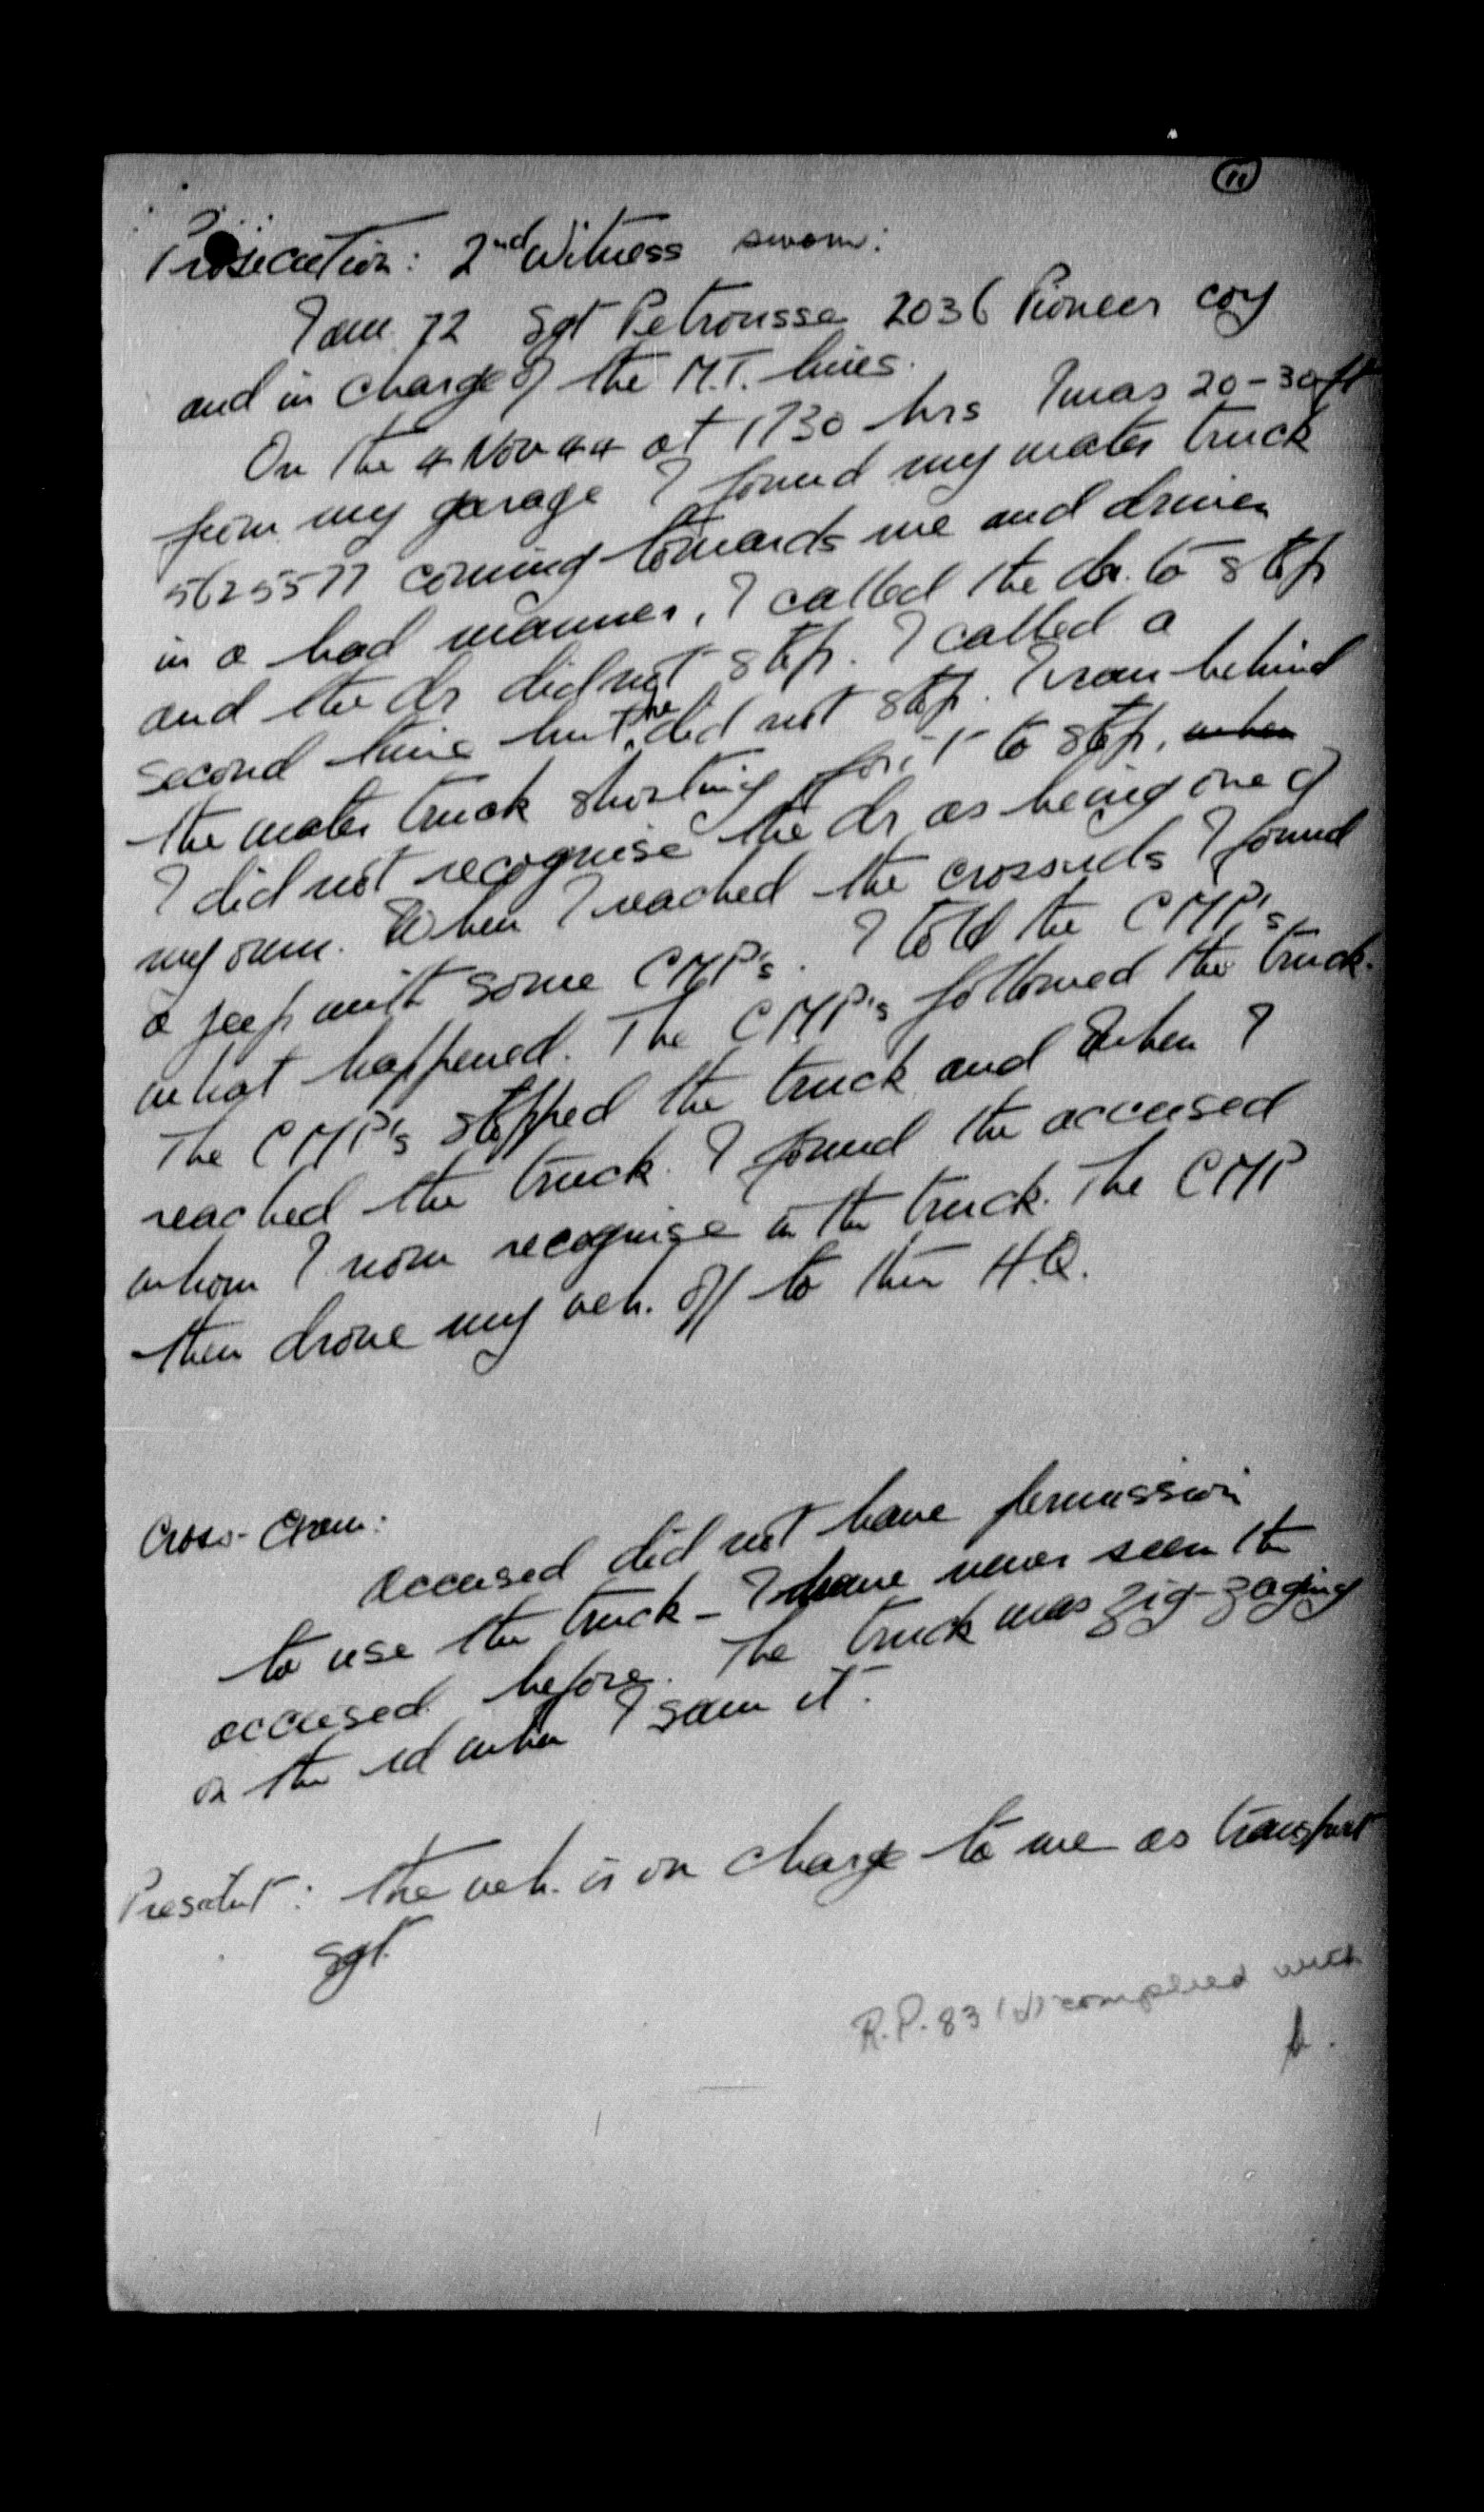 11
Prosecution: 2nd Witness sworn:
I am 72 Sgt Petrousse 2036 Pioneer coy
and in charge of the M.T. lines.
On the 4 Nov 44 at 1730 hrs I was 20-30 ft
from my garage I found my water truck
5625577 coming towards me and driven
in a bad manner, I called the dr. to stop
and the dr did not stop. I called a
second time but he did not stop. I ran behind
the water truck shouting for it to stop, when
I did not recognise the dr as being one of
my own. When I reached the crossrds I found
a jeep with some CMP's. I told the CMP's
what happened. The CMP's followed the truck.
The CMP's stopped the truck and when I
reached the truck. I found the accused
whom I now recognise in the truck. The CMP
then drove my veh. off to their H.Q.
Cross-Exam:
Accused did not have permission
to use the truck - I have never seen the
accused before. The truck was zig-zaging
on the rd when I saw it.
President: The veh. is on charge to me as transport
Sgt.
R.P. 83 (d) complied with